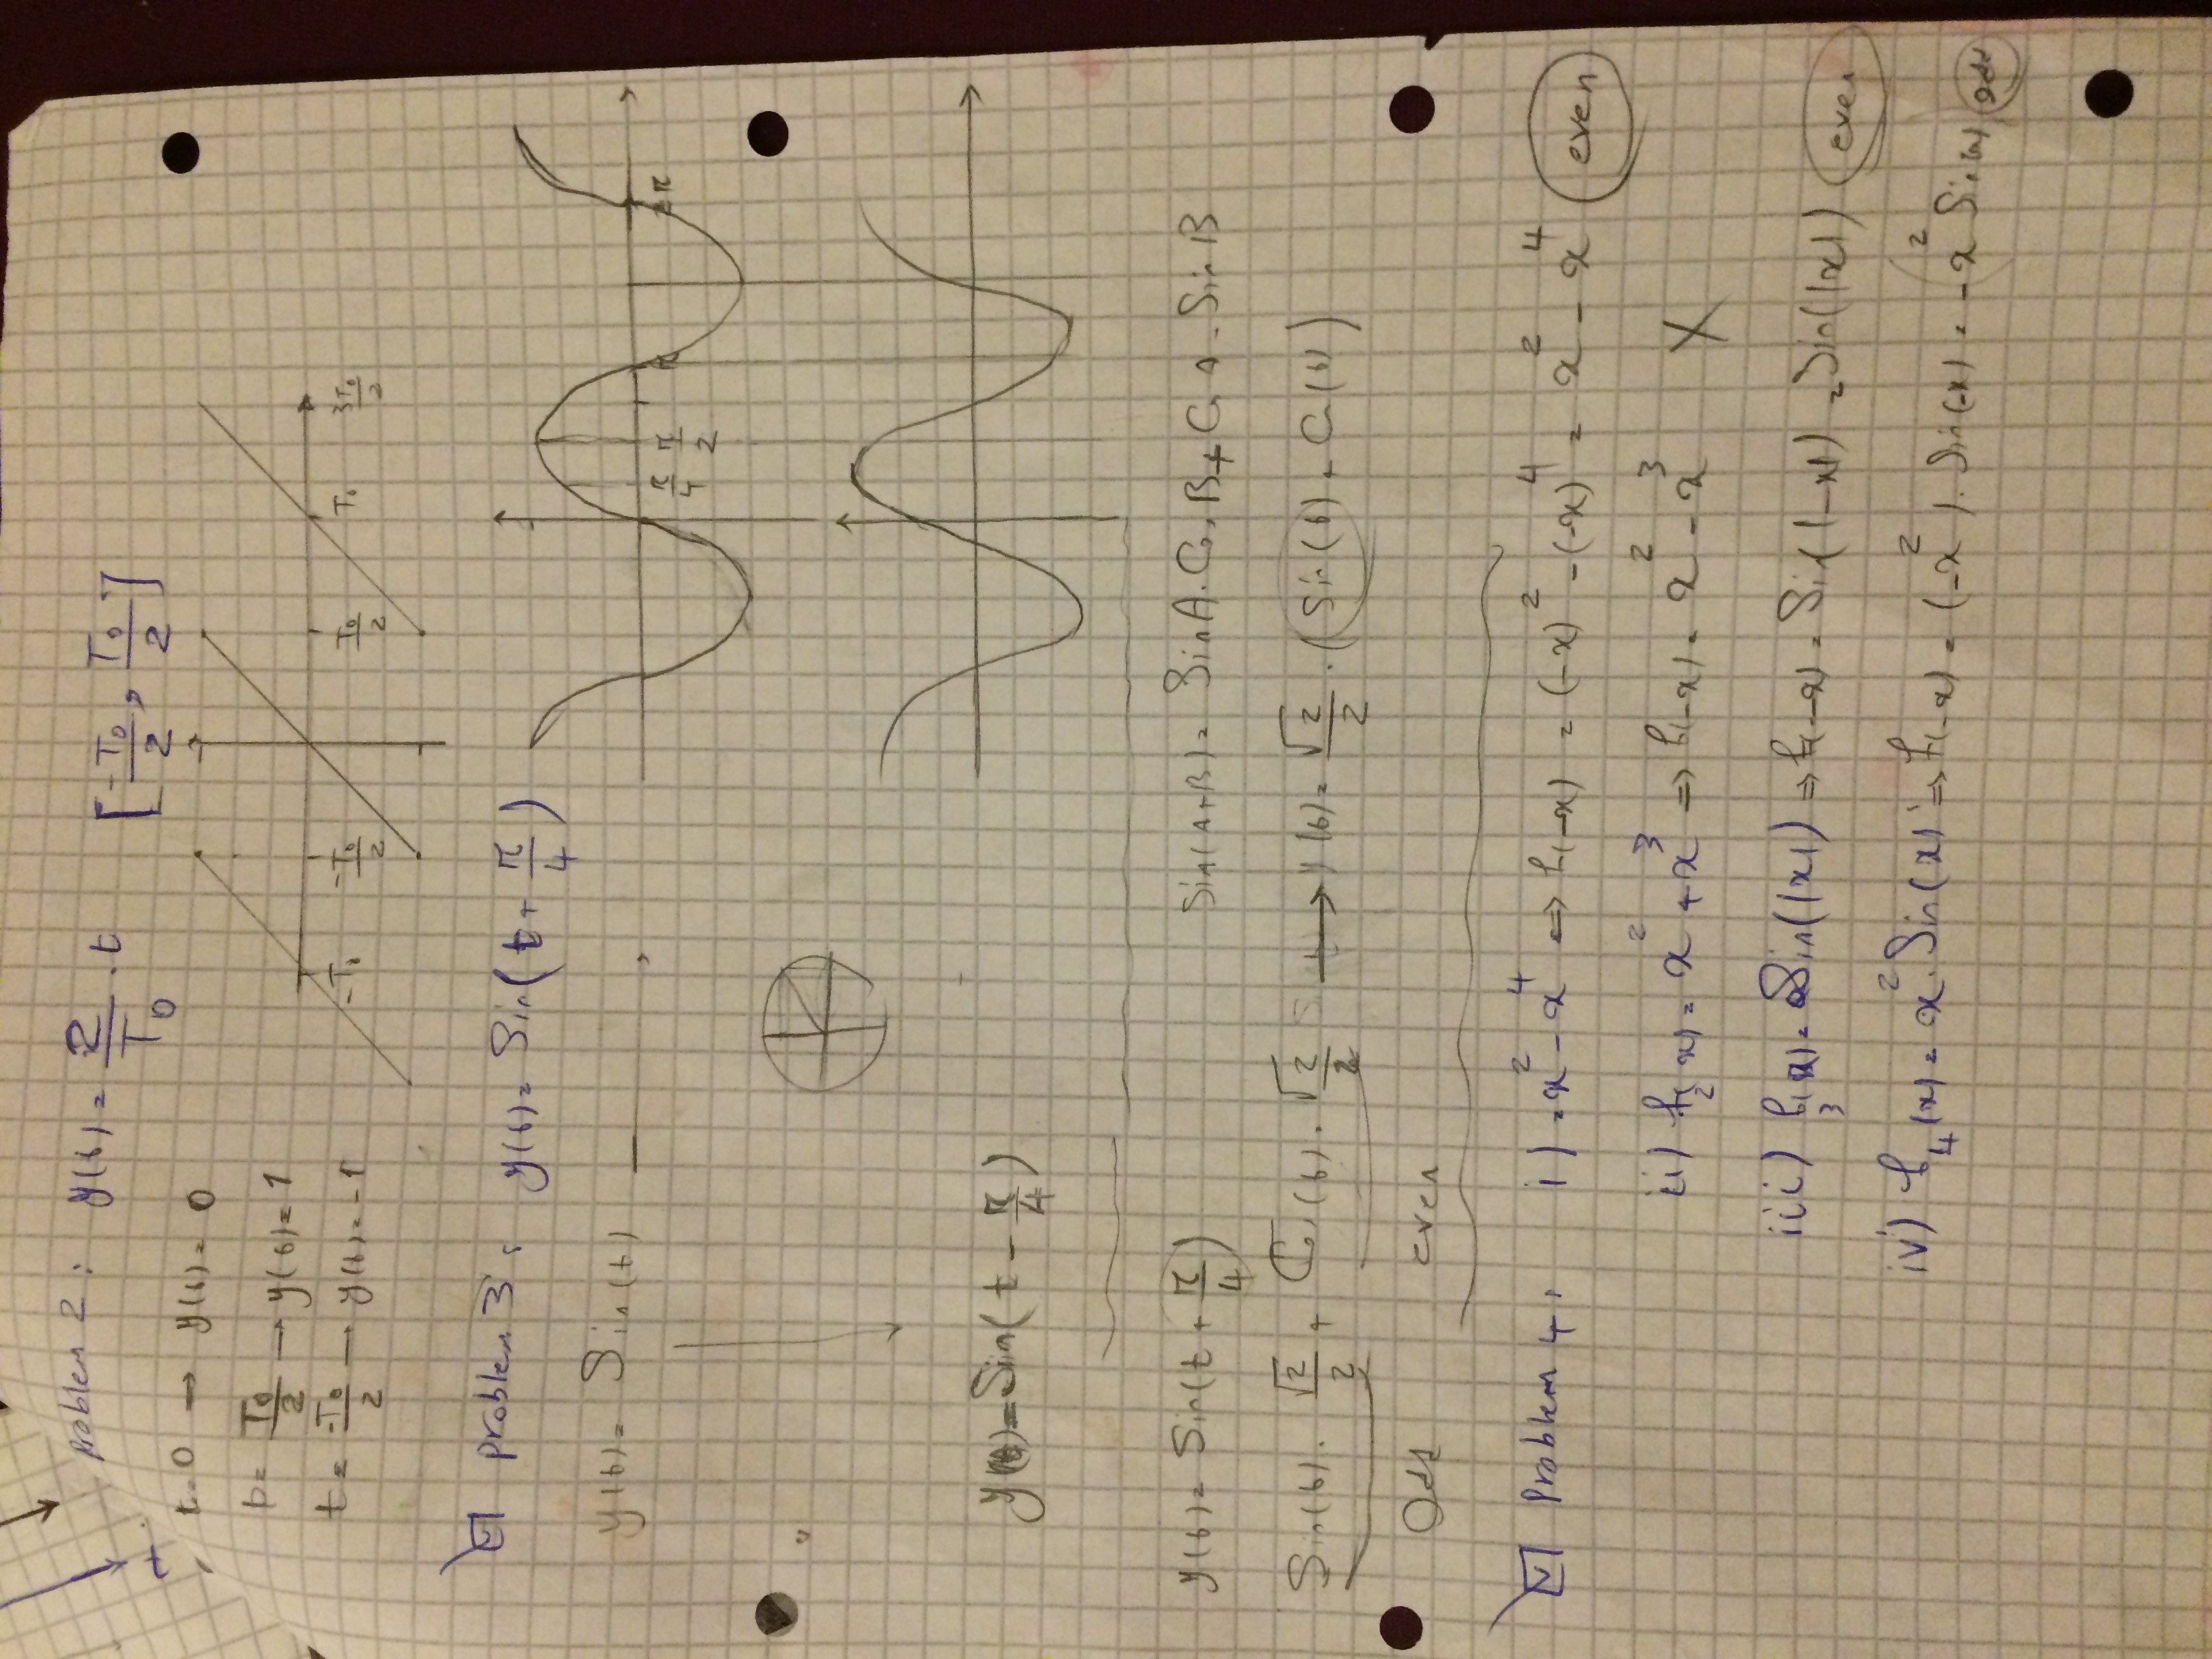 t
problem 2 : y(t) = 2/T₀ . t [-T₀/2 , T₀/2]
t = 0 → y(t) = 0
t = T₀/2 → y(t) = 1
t = -T₀/2 → y(t) = -1
-T₀ -T₀/2 T₀/2 T₀ 3T₀/2
problem 3 : y(t) = Sin(t + π/4)
y(t) = Sin(t)
π/4 π/2 π 2π
y(t) = Sin(t - π/4)
y(t) = Sin(t + π/4) Sin(A+B) = SinA . Cos B + Cos A . Sin B
Sin(t) . √2/2 + Cos(t) . √2/2 → y(t) = √2/2 . (Sin(t) + Cos(t))
Odd even
Problem 4 : i) = x² - x⁴ ⇔ f(-x) = (-x)² - (-x)⁴ = x² - x⁴ even
ii) f₂(x) = x² + x³ ⇒ f(-x) = x² - x³ X
iii) f₃(x) = Sin(|x|) ⇒ f(-x) = Sin(|-x|) = Sin(|x|) even
iv) f₄(x) = x² . Sin(x) ⇒ f(-x) = (-x²) . Sin(-x) = -x² Sin(x) odd